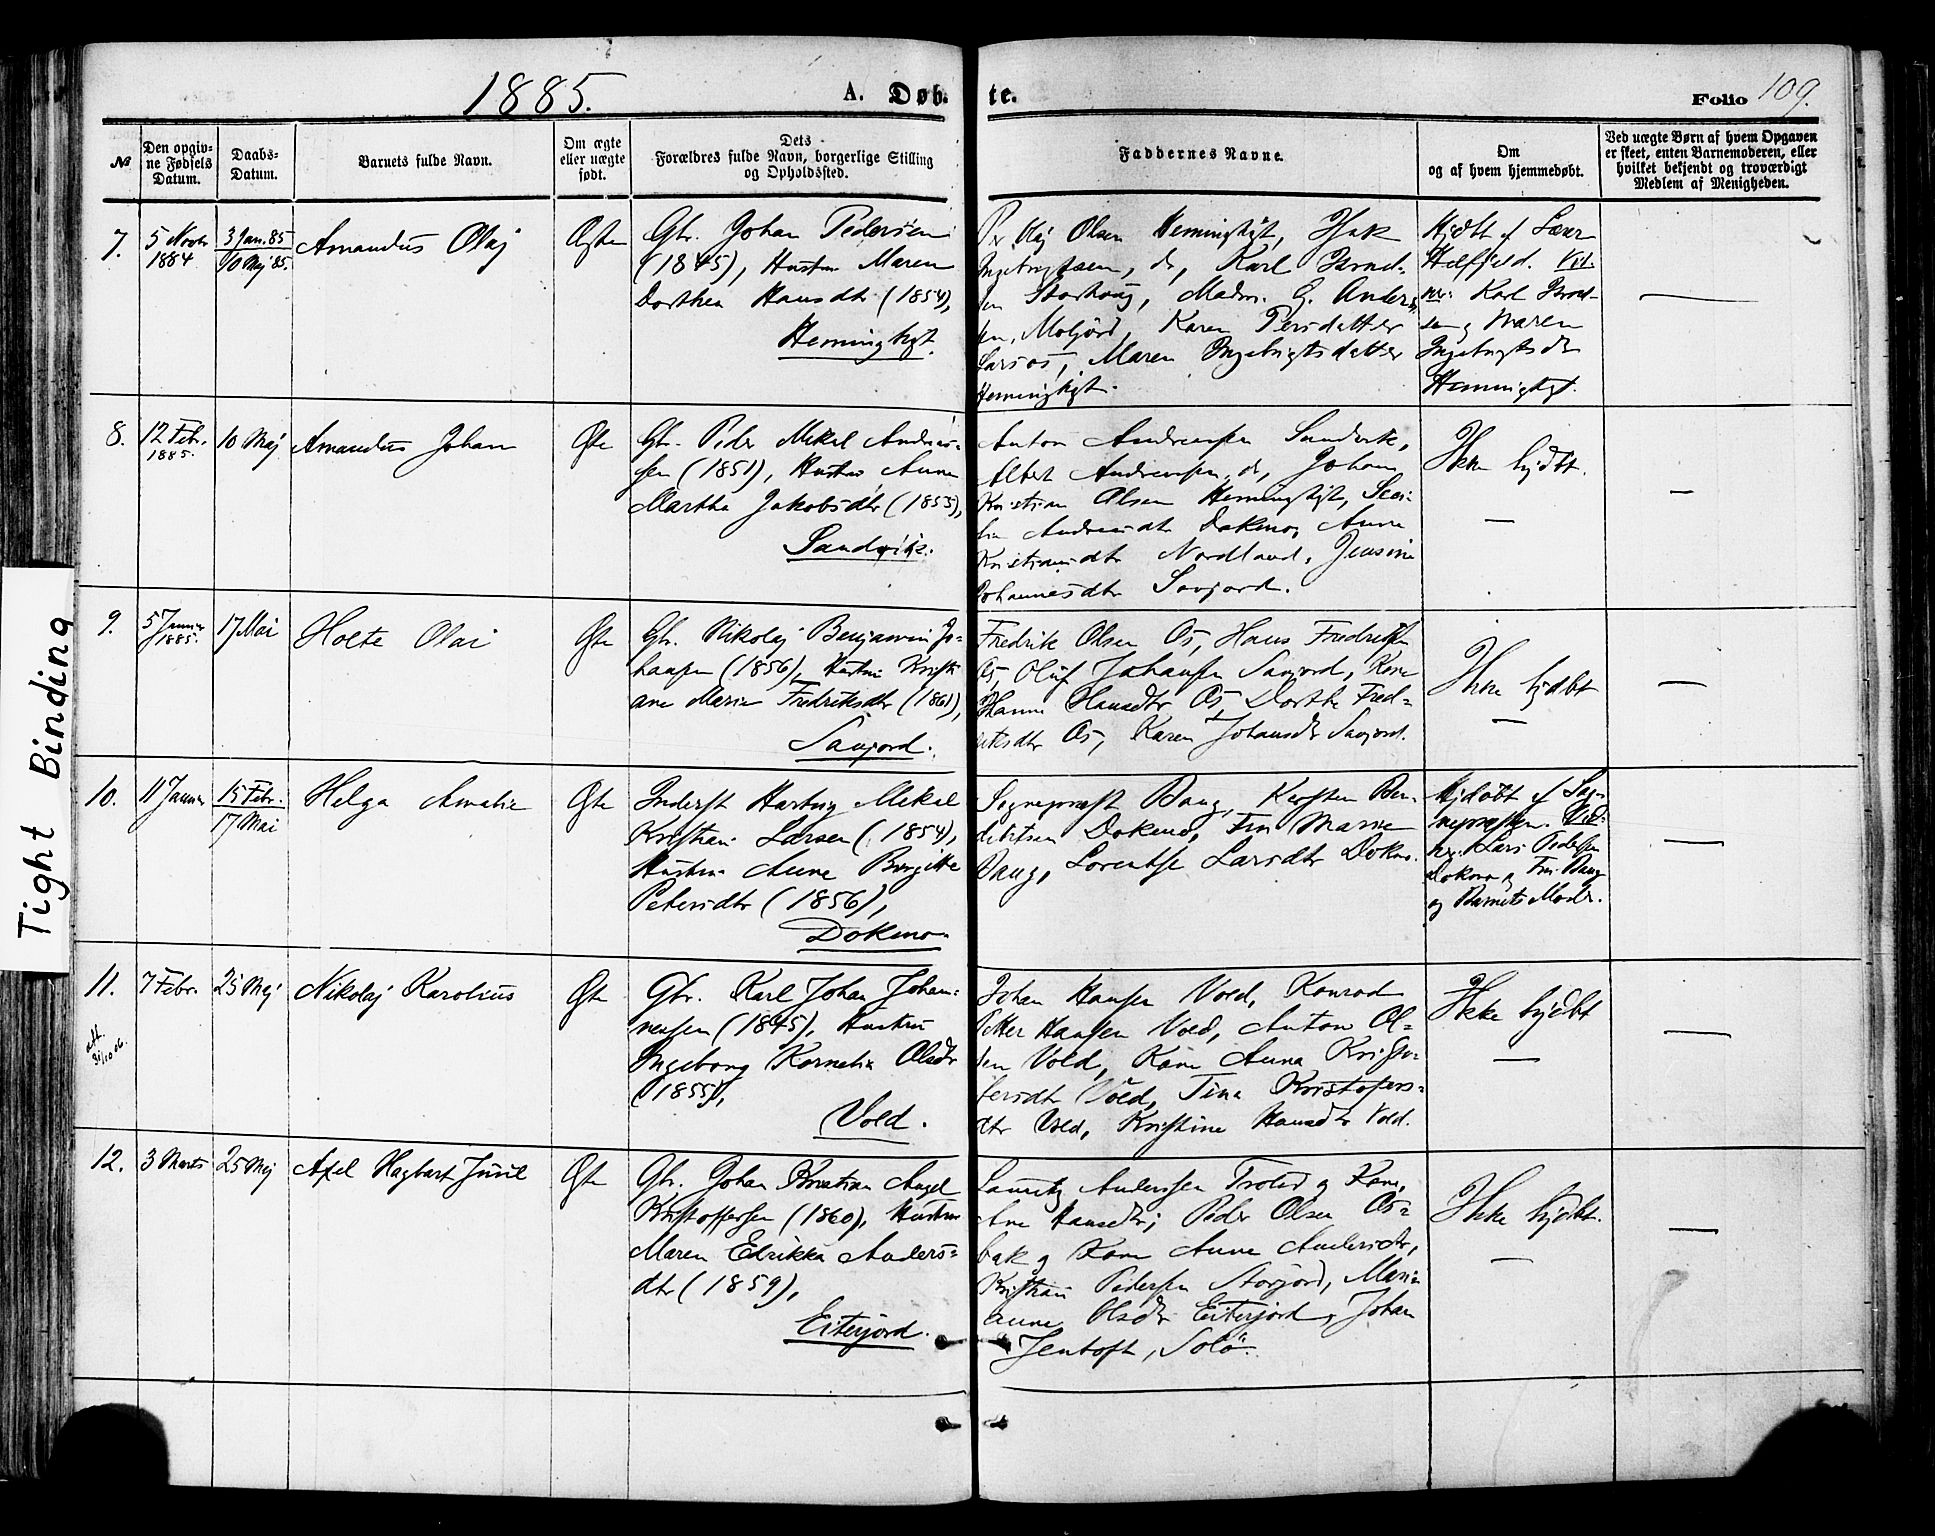 1885.
A. Døb-
te.
Folio 109.
№
Den opgiv-
ne Fødsels
Datum.
Daabs-
Datum.
Barnets fulde Navn.
Om ægte
eller uægte
født.
Dets
Forældres fulde Navn, borgerlige Stilling
og Opholdssted.
Faddernes Navne.
Om
og af hvem hjemmedøbt.
Ved uægte Børn af hvem Opgaven
er skeet, enten Barnemoderen, eller
hvilket bekjendt og troværdigt
Medlem af Menigheden.
7.
5 Novbr
1884
3 Jan. 85
10 Maj 85.
Amandus Olaj
Ægte
Gbr. Johan Pedersen
(1845), Hustru Maren
Dorthea Hansdtr (1854),
Heminghgt.
Olaj Olsen Heminghgt,
Ingebrigtsen, do, Karl
Storhaug, Madm. G. Ander
sen, Moljord, Karen Persdatter
Larsos, Maren Ingebrigtsdatter
Heminghgt.
Hjdbt af
Vid-
ner: Karl
sen og Maren
Ingebrigtsdtr
Hemminghgt.
8.
12 Febr.
1885.
10 Maj
Amandus Johan
Ægte
Gbr. Peder Mekal Andreas-
sen (1851), Hustru Anne
Martha Jakobsdtr (1853),
Sandvik.
Anton Andreassen Sandvik,
Albert Andreassen, do, Johan
Kristian Olsen Heminghgt,
Andreasdtr Dokmo, Anne
Kristiansdtr Nordland, Jensine
Johannesdtr Savjord.
Ikke hjdbt.
9.
5 Januar
1885.
17 Mai
Holte Olai
Ægte
Gbr. Nikolaj Benjamin Jo-
hansen (1856), Hustru Kristi-
ane Marie Fredriksdtr (1861),
Savjord.
Fredrik Olsen Os, Hans Fredriksen
Os, Oluf Johansen Savjord, Kone
Hanna Hansdtr Os, Dorthe Fred-
riksdtr Os, Karen Johansdtr Savjord.
Ikke hjdbt
10.
11 Januar
15 Febr.
17 Mai
Helga Amalie
Ægte
Inderst Hartvig Mekal
Kristian Larsen (1854),
Hustru Anne Birgitte
Petersdtr (1856),
Dokmo.
Sogneprest Daug, Kersten Ben-
diktsen Dokmo, Fru Marie
Daug, Lorentse Larsdtr Dokmo.
Hjdøbt af Sog-
nepresten. Vid-
ner: Lars Pedersen
Dokmo og Fru Daug
og Barnets Moder.
11.
att.
31/10 06.
7 Febr.
25 Maj
Nikolaj Karolius
Ægte
Gbr. Karl Johan Johan-
nessen (1845), Hustru
Ingeborg Kornelia Olsdtr
(1855),
Vold.
Johan Hansen Vold, Konrad
Petter Hansen Vold, Anton Ol-
sen Vold, Kone Anna Kristo-
fersdtr Vold, Tina Kristofers-
dtr Vold, Kristine Hansdtr Vold.
Ikke hjdbt
12.
3 Marts
25 Maj
Axel Hagbart Juul
Ægte
Gbr. Johan Kristian Angel
Kristoffersen (1860), Hustru
Maren Edrikka Anders-
dtr (1859),
Eiterjord.
Lauritz Anderssen Troled og Kone,
Ane Hansdtr; Peder Olsen Os-
bak og Kone Anne Andersdtr,
Kristian Pedersen Storjord, Marie
Anne Olsdtr Eiterjord, Johan
Jentoft, Solø.
Ikke hjdbt.
Tight Binding